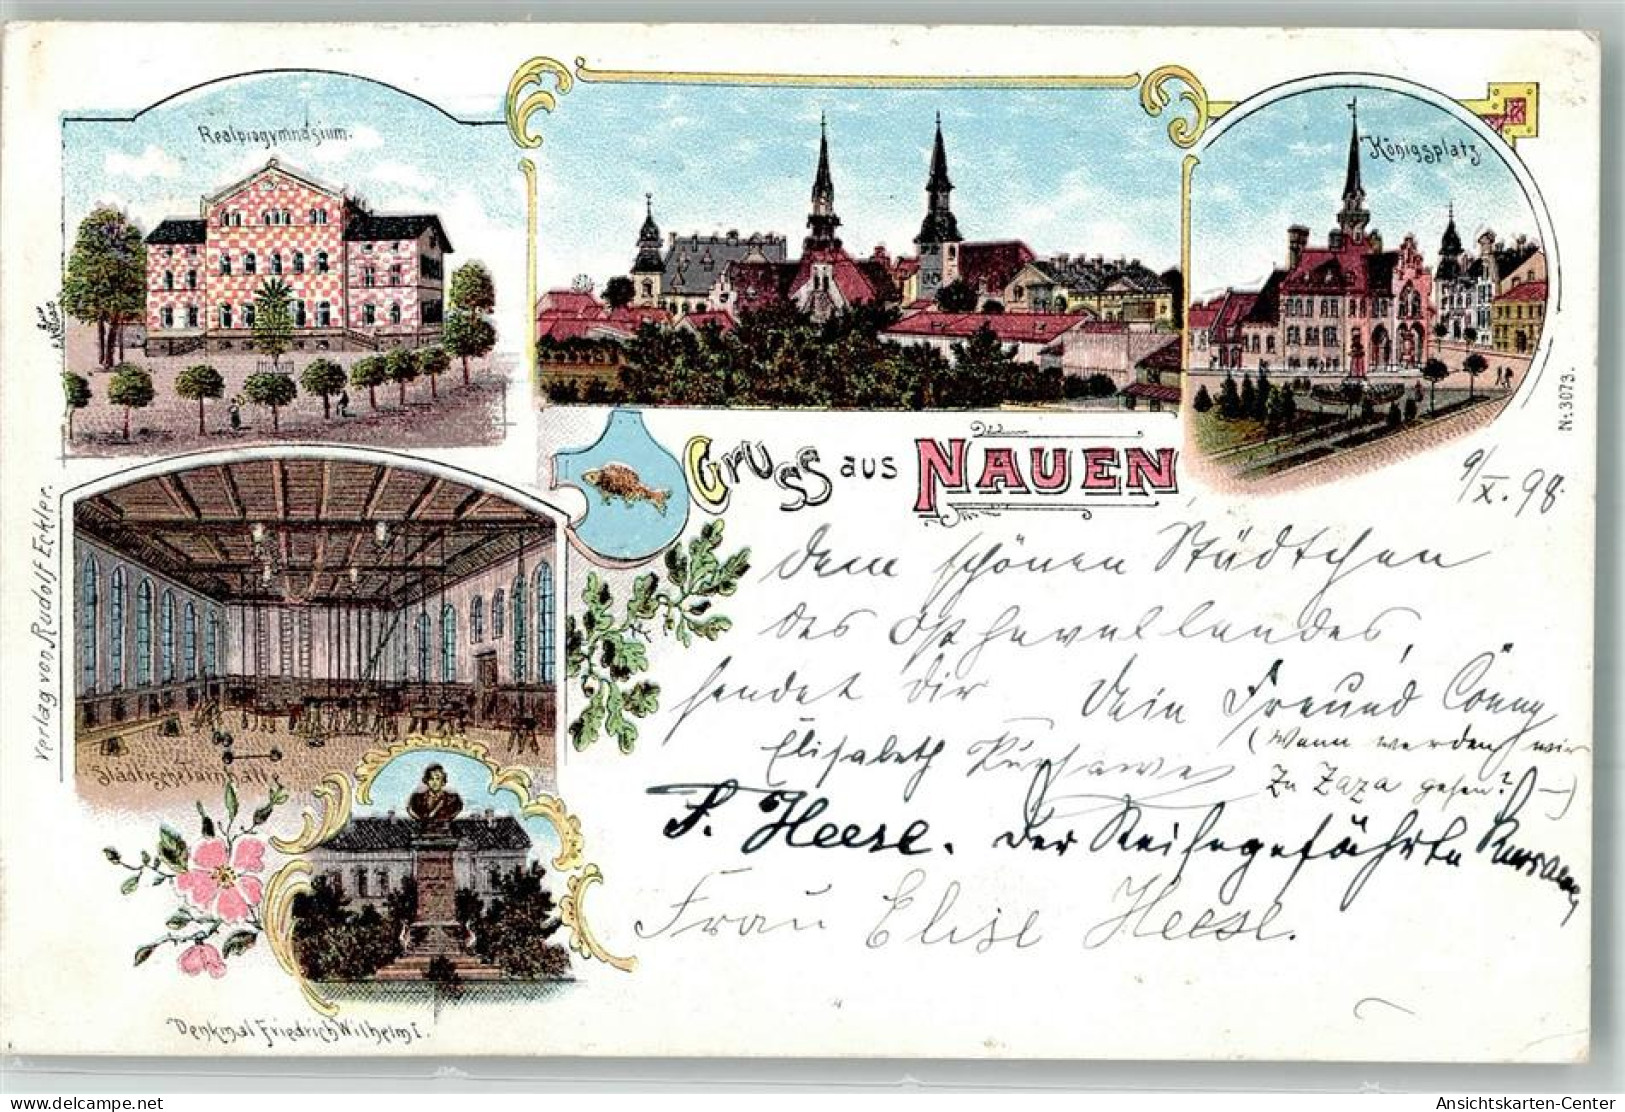 Realprogymnasium.
Königsplatz
Nr. 3073.
Gruss aus NAUEN
9/X. 98.
Verlag von Rudolf Eckler.
dem schönen Städtchen
des Osthavellandes,
sendet dir Dein Freund Conny
(Wann werden wir
zu Zaza gehen? —)
Elisabeth
F. Heese. Der Reisegefährte
Frau Elise Heese.
Städtische Turnhalle
Denkmal Friedrich Wilhelm I.
Ansichtskarten-Center
oldthing.de